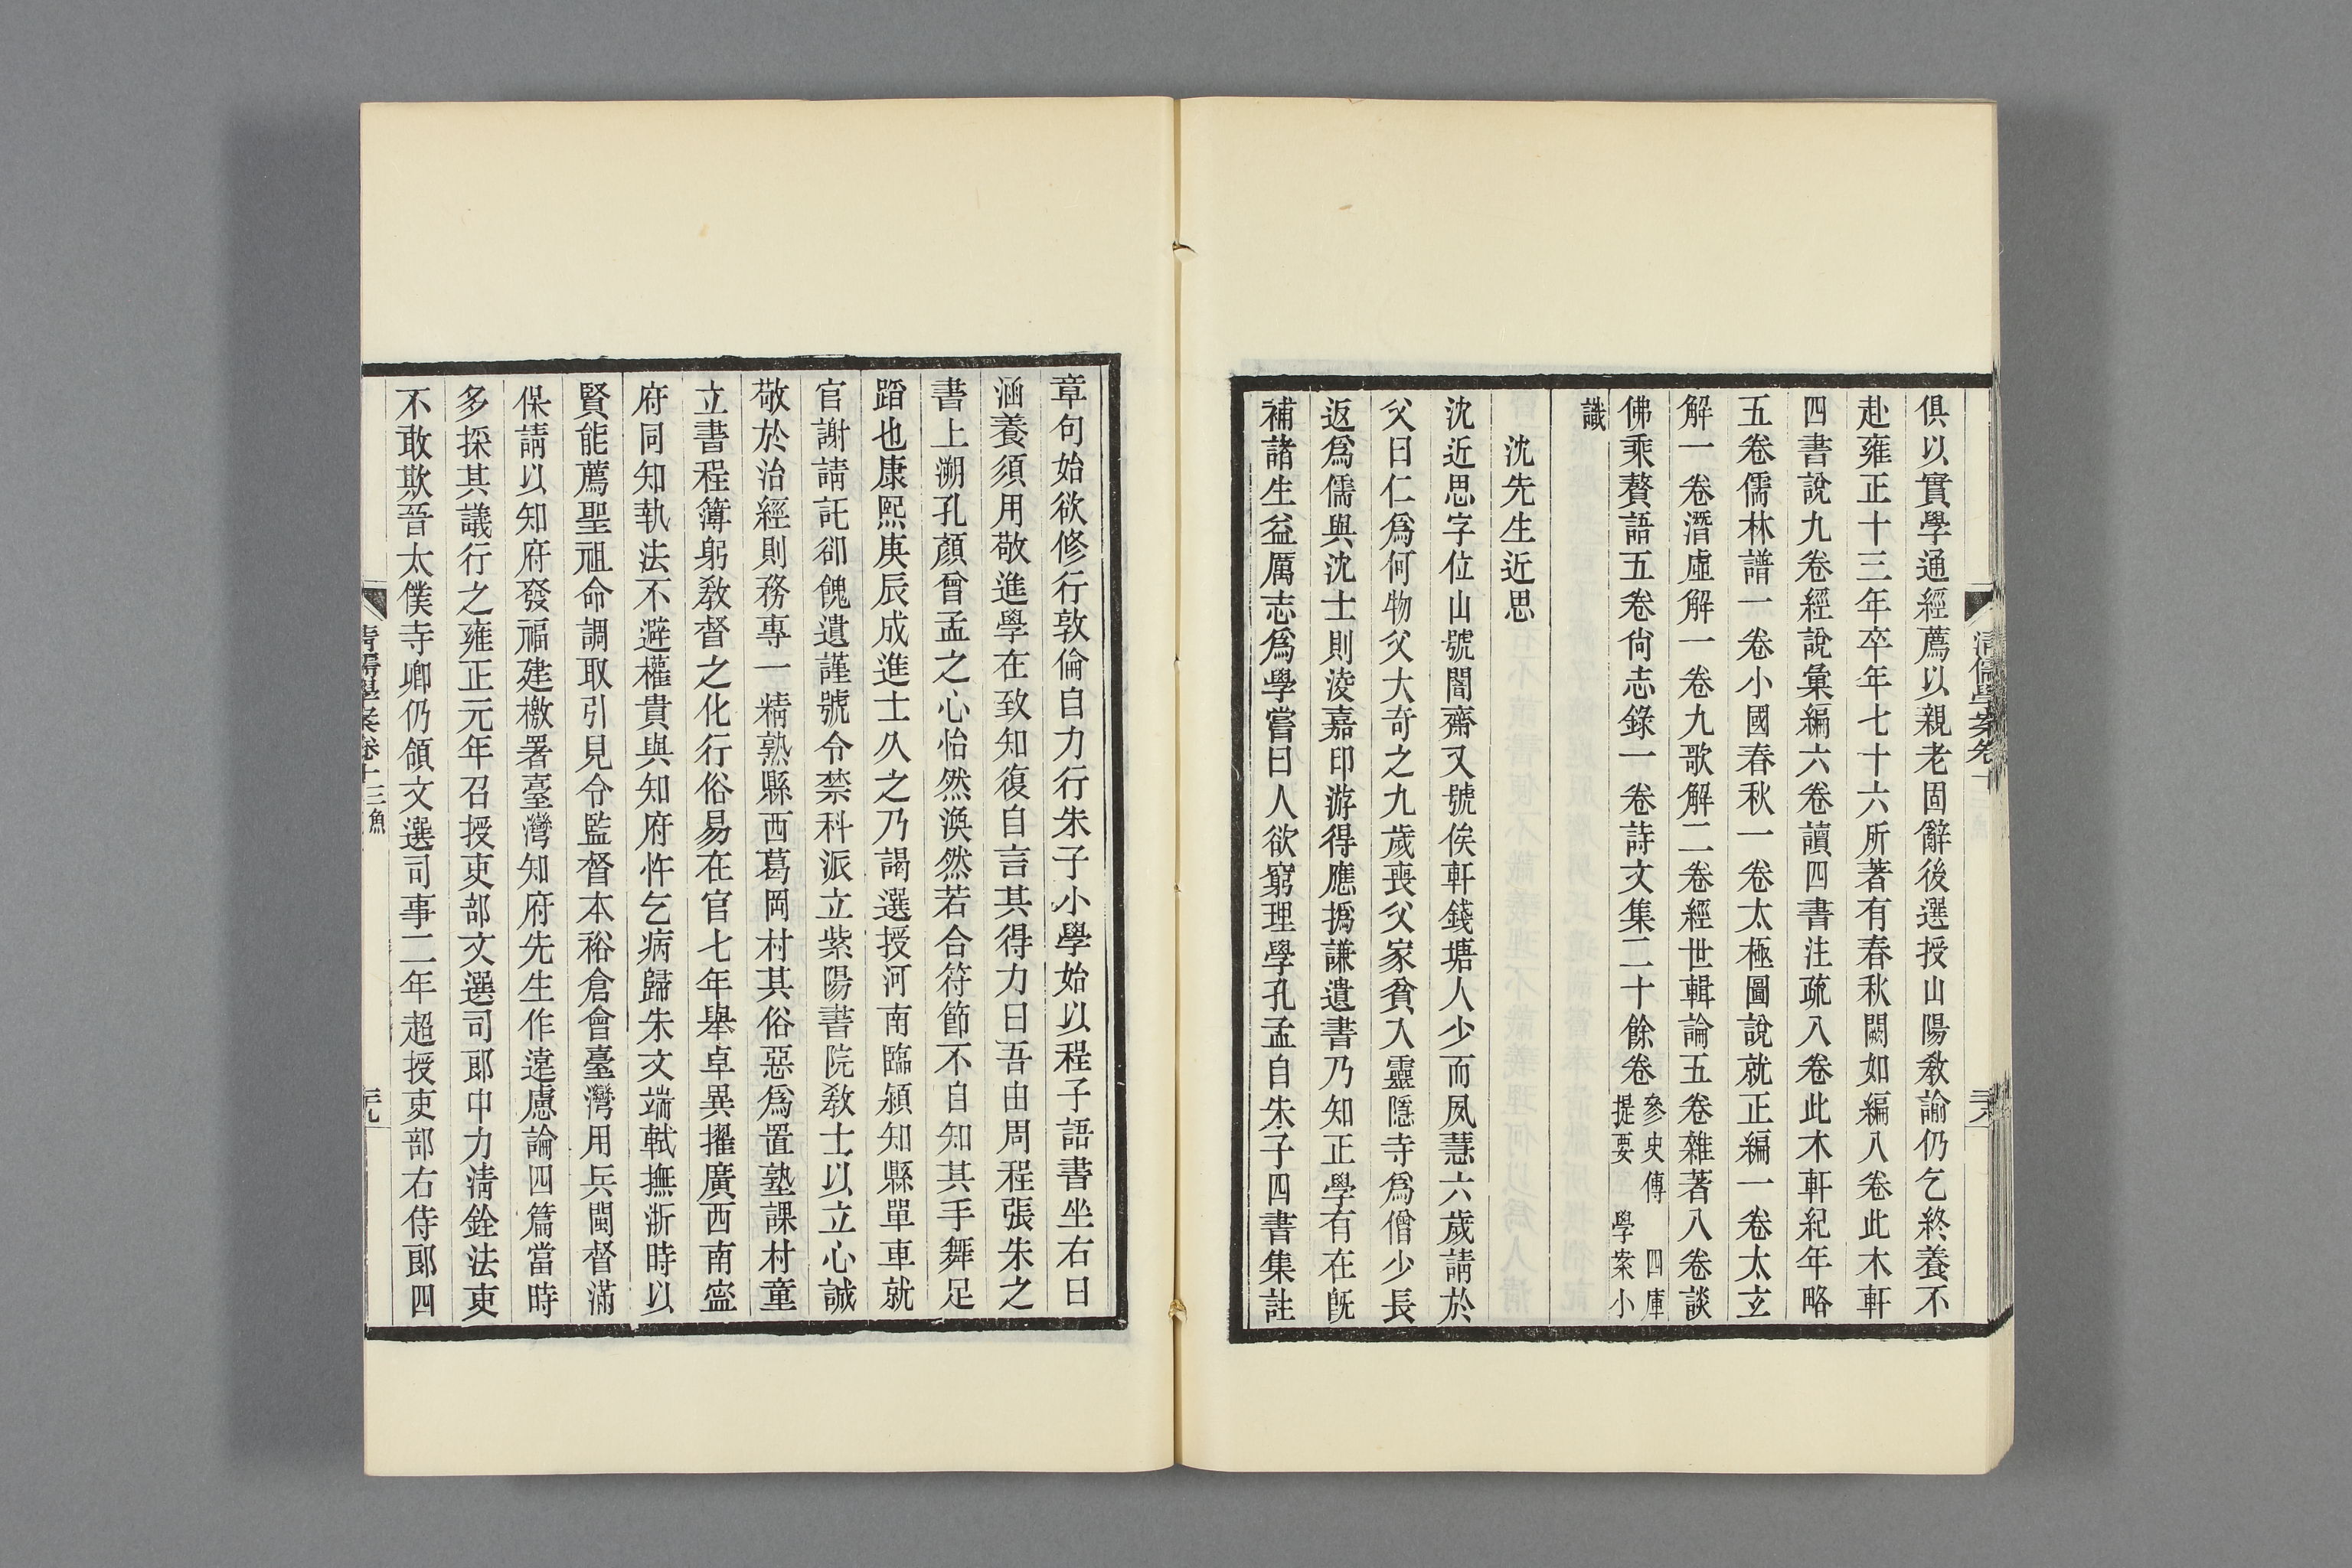 俱以實學通經薦以親老固辭後選授山陽敎諭仍乞終養不
赴雍正十三年卒年七十六所著有春秋闕如編八卷此木軒
四書說九卷經說彙編六卷讀四書注疏八卷此木軒紀年略
五卷儒林譜一卷小國春秋一卷太極圖說就正編一卷太玄
解一卷潛虛解一卷九歌解二卷經世輯論五卷雜著八卷談
佛乘贅語五卷尙志錄一卷詩文集二十餘卷
參史傳 四庫
提要 學案小
識
沈先生近思
沈近思字位山號闇齋又號俟軒錢塘人少而夙慧六歲請於
父曰仁爲何物父大奇之九歲喪父家貧入靈隱寺爲僧少長
返爲儒與沈士則淩嘉印游得應撝謙遺書乃知正學有在旣
補諸生益厲志爲學嘗曰人欲窮理學孔孟自朱子四書集註
章句始欲修行敦倫自力行朱子小學始以程子語書坐右曰
涵養須用敬進學在致知復自言其得力曰吾由周程張朱之
書上溯孔顏曾孟之心怡然渙然若合符節不自知其手舞足
蹈也康熙庚辰成進士久之乃謁選授河南臨潁知縣單車就
官謝請託卻餽遺謹號令禁科派立紫陽書院敎士以立心誠
敬於治經則務專一精熟縣西葛岡村其俗惡爲置塾課村童
立書程簿躬敎督之化行俗易在官七年舉卓異擢廣西南寍
府同知執法不避權貴與知府忤乞病歸朱文端軾撫浙時以
賢能薦聖祖命調取引見令監督本裕倉會臺灣用兵閩督滿
保請以知府發福建檄署臺灣知府先生作遠慮論四篇當時
多採其議行之雍正元年召授吏部文選司郎中力淸銓法吏
不敢欺晉太僕寺卿仍領文選司事二年超授吏部右侍郎四